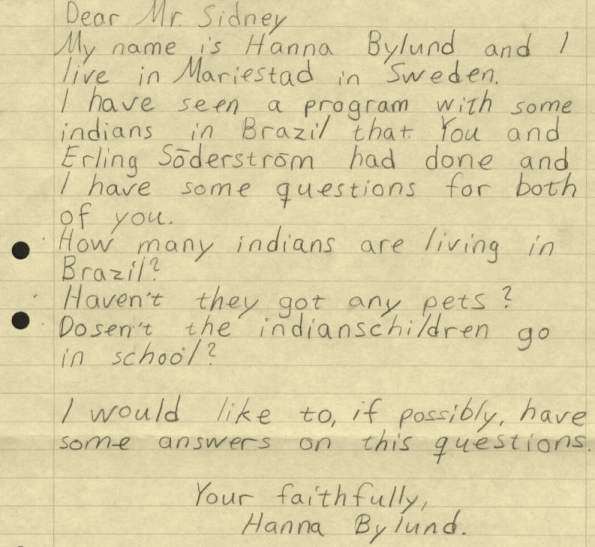 Dear Mr Sidney
My name is Hanna Bylund and I
live in Mariestad in Sweden.
I have seen a program with some
indians in Brazil that You and
Erling Söderström had done and
I have some questions for both
of you.
How many indians are living in
Brazil?
Haven't they got any pets?
Dosen't the indianschildren go
in school?
I would like to, if possibly, have
some answers on this questions.
Your faithfully,
Hanna Bylund.